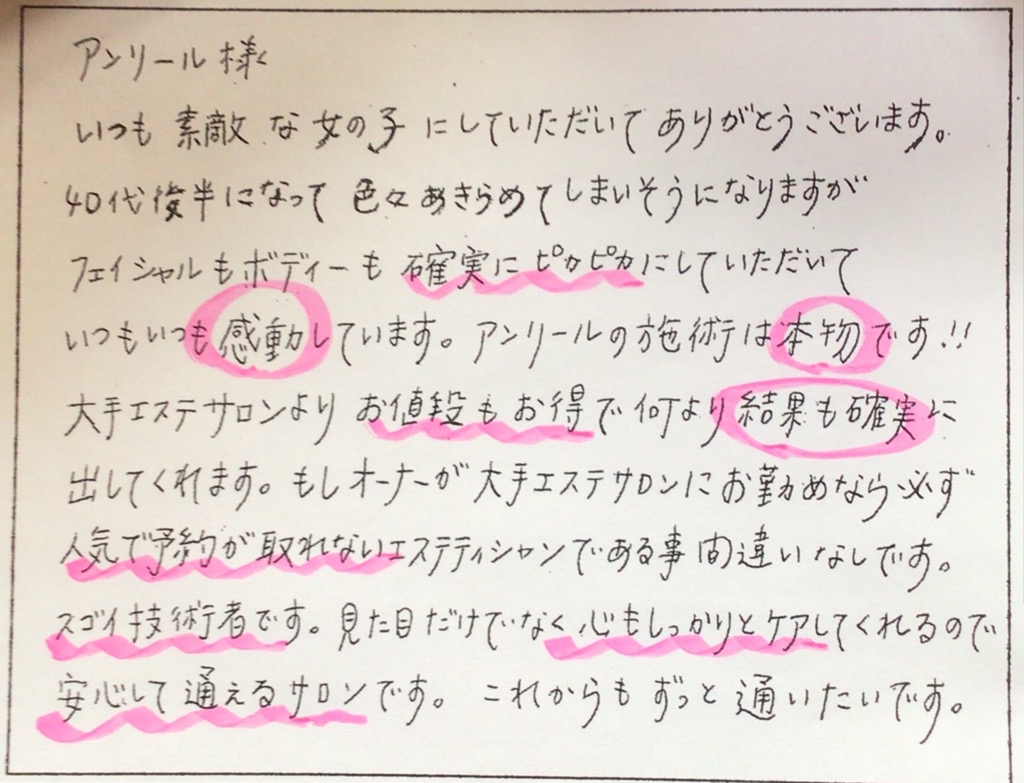 アンリール様
いつも素敵な女の子にしていただいてありがとうございます。
40代後半になって色々あきらめてしまいそうになりますが
フェイシャルもボディーも確実にピカピカにしていただいて
いつもいつも感動しています。アンリールの施術は本物です!!
大手エステサロンよりお値段もお得で何より結果も確実に
出してくれます。もしオーナーが大手エステサロンにお勤めなら必ず
人気で予約が取れないエステティシャンである事間違いなしです。
スゴイ技術者です。見た目だけでなく心もしっかりとケアしてくれるので
安心して通えるサロンです。これからもずっと通いたいです。